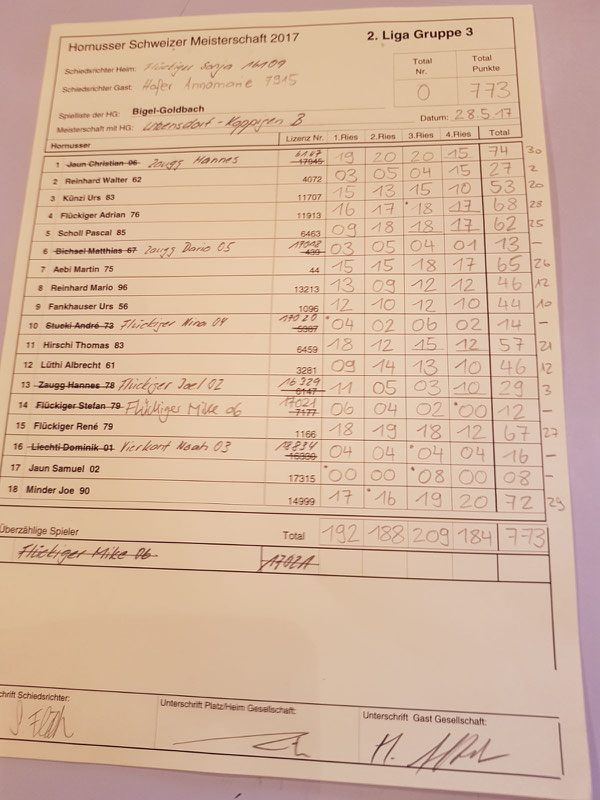 Hornusser Schweizer Meisterschaft 2017 2. Liga Gruppe 3
Schiedsrichter Heim: Flückiger Sonja 16109 Total Nr. Total Punkte
Schiedsrichter Gast: Hofer Annamarie 7915 0 773
Spielliste der HG: Bigel-Goldbach
Meisterschaft mit HG: Utzensdorf-Koppigen B Datum: 28.5.17
Hornusser Lizenz Nr. 1.Ries 2.Ries 3.Ries 4.Ries Total
1 Jaun Christian 96 Zaugg Hannes 6147 17045 19 20 20 15 74 30
2 Reinhard Walter 62 4072 03 05 04 15 27 2
3 Künzi Urs 83 11707 15 13 15 10 53 20
4 Flückiger Adrian 76 11913 16 17 *18 17 68 28
5 Scholl Pascal 85 6463 09 18 18 17 62 25
6 Bichsel Matthias 67 Zaugg Dario 05 17018 439 03 05 04 01 13 -
7 Aebi Martin 75 44 15 15 18 17 65 26
8 Reinhard Mario 96 13213 13 09 12 12 46 12
9 Fankhauser Urs 56 1096 12 10 12 10 44 10
10 Stucki André 73 Flückiger Nina 04 17020 5987 *04 02 06 02 14 -
11 Hirschi Thomas 83 6459 18 12 15 12 57 21
12 Lüthi Albrecht 61 3281 09 14 13 10 46 12
13 Zaugg Hannes 78 Flückiger Joel 02 16329 6147 11 05 03 10 29 3
14 Flückiger Stefan 79 Flückiger Mike 06 17021 7177 06 04 02 *00 12 -
15 Flückiger René 79 1166 18 19 18 12 67 27
16 Liechti Dominik 01 Vierkant Noah 03 18834 04 04 *04 04 16 -
17 Jaun Samuel 02 17315 *00 00 *08 00 08 -
18 Minder Joe 90 14999 17 *16 19 20 72 29
Überzählige Spieler Total 192 188 209 184 773
Flückiger Mike 06 17021
Schiedsrichter: Unterschrift Platz/Heim Gesellschaft: Unterschrift Gast Gesellschaft: